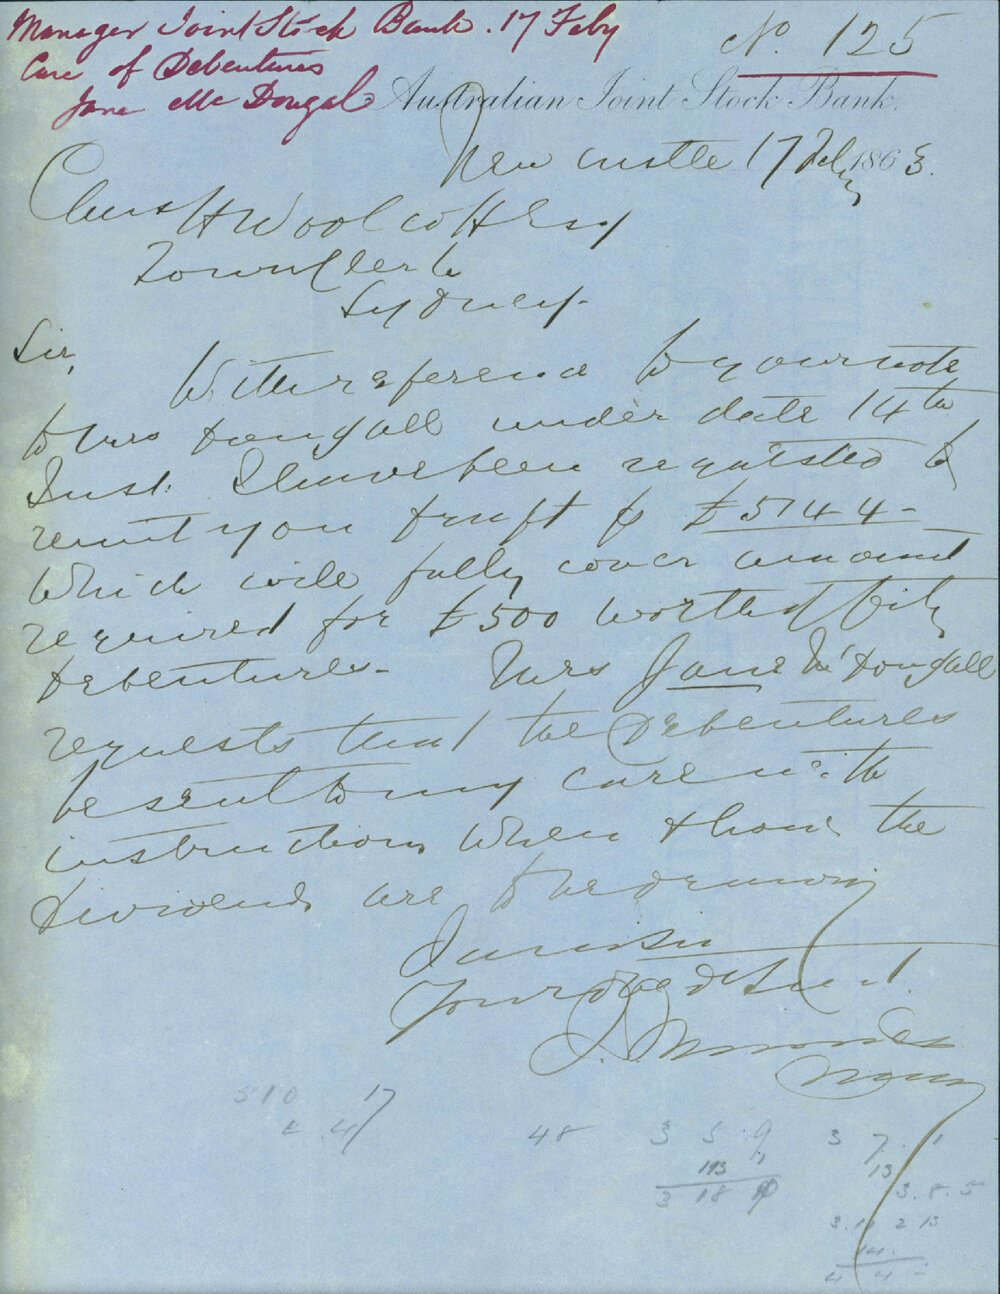 Manager Joint Stock Bank. 17 Feby
Care of Debentures
Jane McDougal
No. 125
Australian Joint Stock Bank.
Newcastle 17 Feby 1863.
Chas H Woolcott Esq
Town Clerk
Sydney.
Sir,
With reference to your note
to Mrs Dougall under date 14th
Inst. I have been requested to
remit you draft for £514 4 -
which will fully cover amount
required for £500 worth of City
Debentures. Mrs Jane McDougall
requests that the Debentures
be sent to my care with
instructions when & how the
Dividends are to be drawn
I am Sir
Your obedt Servt.
Manager
510 17
4
48 3 5 9 3 7 1
193 13
3 18 3.8.5
3. 2 13
14
4 4 -